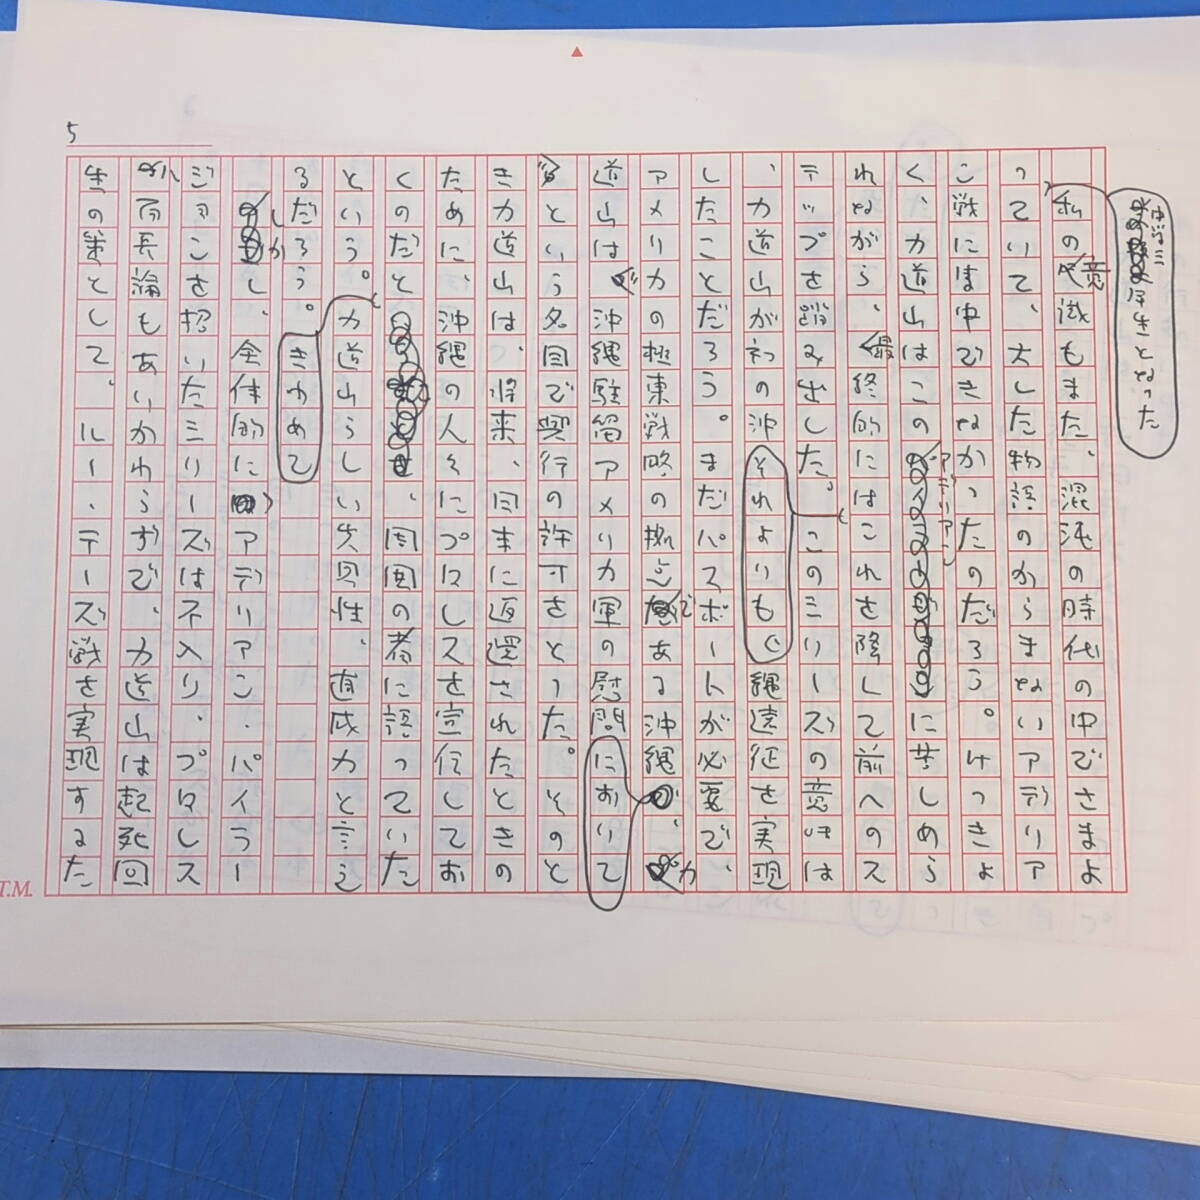 5
私の意識もまた、混沌の時代の中でさまよ
っていて、大した物語のからまないアデリア
ン戦に集中できなかったのだろう。けっきょ
く、力道山はこのアデリアンに苦しめら
れながら、最終的にはこれを降して前へのス
テップを踏み出した。このシリーズの意味は
、それよりも力道山が初の沖縄遠征を実現
したことだろう。まだパスポートが必要で、
アメリカの極東戦略の拠点である沖縄、力
道山は沖縄駐留アメリカ軍の慰問において
という名目で興行の許可をとった。そのと
き力道山は、将来、日本に返還されたときの
ために、沖縄の人々にプロレスを宣伝してお
くのだと、周囲の者に語っていた
という。力道山らしい先見性、直感力と言え
るだろう。きわめて
しかし、全体的にアデリアン・バイラー
ジョンを招いたシリーズは不入り、プロレス
八百長論もあいかわらずで、力道山は起死回
生の策として、ルー・テーズ戦を実現するた
T.M.